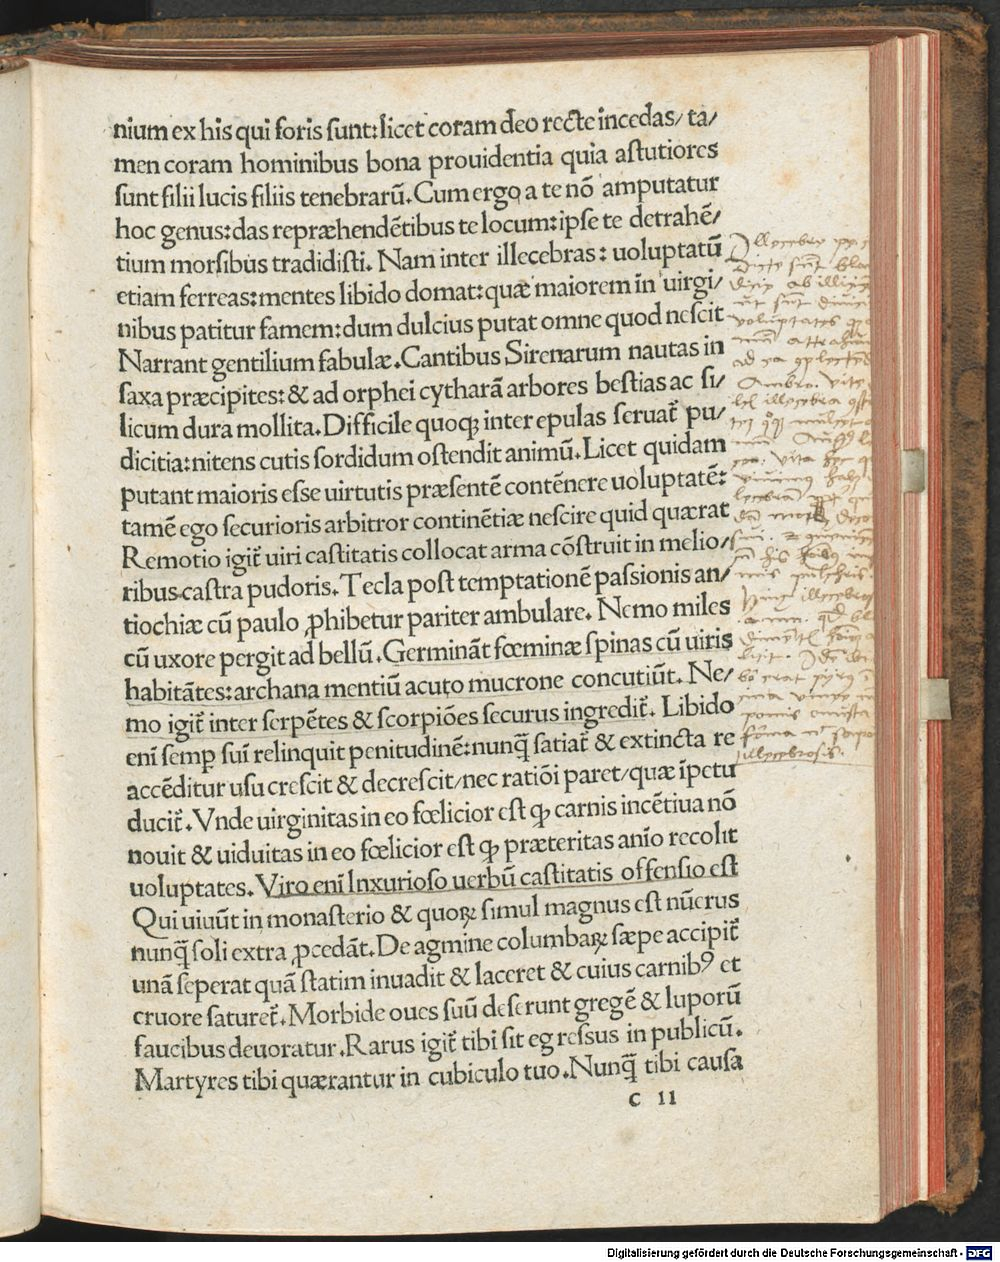 nium ex his qui foris sunt: licet coram deo recte incedas/ ta/
men coram hominibus bona prouidentia quia astutiores
sunt filii lucis filiis tenebrarū. Cum ergo a te nō amputatur
hoc genus: das repræhendētibus te locum: ipse te detrahē/
tium morsibus tradidisti. Nam inter illecebras: uoluptatū
etiam ferreas: mentes libido domat: quæ maiorem in uirgi/
nibus patitur famem: dum dulcius putat omne quod nescit
Narrant gentilium fabulæ. Cantibus Sirenarum nautas in
saxa præcipites: & ad orphei cytharā arbores bestias ac si/
licum dura mollita. Difficile quoqꝫ inter epulas seruat᷑ pu/
dicitia: nitens cutis sordidum ostendit animū. Licet quidam
putant maioris esse uirtutis præsentē contēnere uoluptatē:
tamē ego securioris arbitror continētiæ nescire quid quærat
Remotio igit᷑ uiri castitatis collocat arma cōstruit in melio/
ribus castra pudoris. Tecla post temptationē passionis an/
tiochiæ cū paulo ꝓhibetur pariter ambulare. Nemo miles
cū uxore pergit ad bellū. Germināt fœminæ spinas cū uiris
habitātes: archana mentiū acuto mucrone concutiūt. Ne/
mo igit᷑ inter serpētes & scorpiōes securus ingredit᷑. Libido
enī semꝑ sui relinquit penitudinē: nunq̄ satiat᷑ & extincta re
accēditur usu crescit & decrescit/ nec ratiōi paret/ quæ īpetu
ducit᷑. Vnde uirginitas in eo fœlicior est ꝙ carnis incētiua nō
nouit & uiduitas in eo fœlicior est ꝙ præteritas anīo recolit
uoluptates. Viro enī lnxurioso uerbū castitatis offensio est
Qui uiuūt in monasterio & quoꝝ simul magnus est nūerus
nunq̄ soli extra ꝓcedāt. De agmine columbaꝝ sæpe accipit᷑
unā seperat quā statim inuadit & laceret & cuius carnibꝰ et
cruore saturet᷑. Morbide oues suū deserunt gregē & luporū
faucibus deuoratur. Rarus igit᷑ tibi sit egressus in publicū.
Martyres tibi quærantur in cubiculo tuo. Nunq̄ tibi causa
c 11
voluptates
illecebrosis.
Digitalisierung gefördert durch die Deutsche Forschungsgemeinschaft - DFG